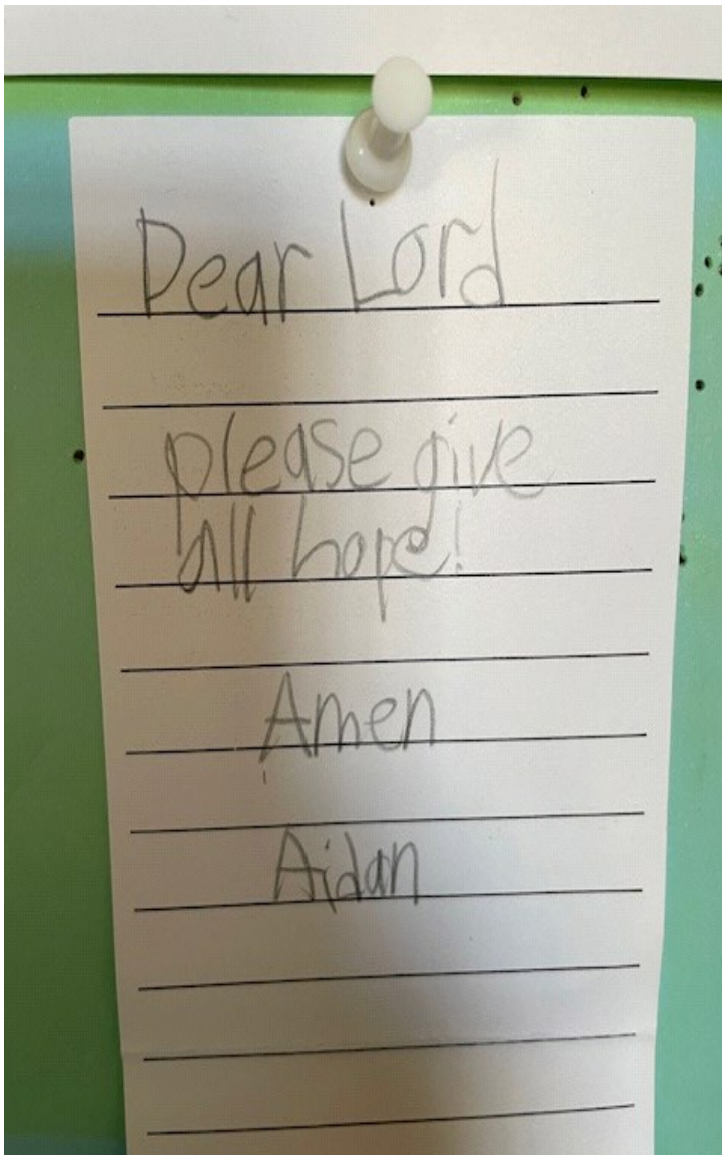 Dear Lord
please give
all hope!
Amen
Aidan